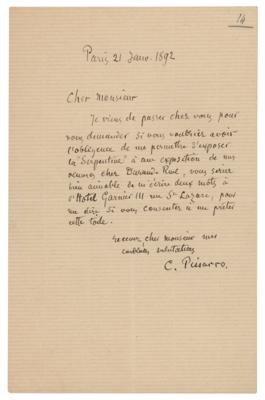 14
Paris 21 Janv. 1892
Cher Monsieur
Je viens de passer chez vous pour
vous demander si vous voudriez avoir
l'obligeance de me permettre d'exposer
la "Serpentine" à une exposition de mes
oeuvres chez Durand-Ruel, vous seriez
bien aimable de m'écrire deux mots à
l'Hotel Garnier 111 rue St Lazare, pour
me dire si vous consentez à me prêter
cette toile.
Recevez cher monsieur mes
cordiales salutations
C. Pissarro.